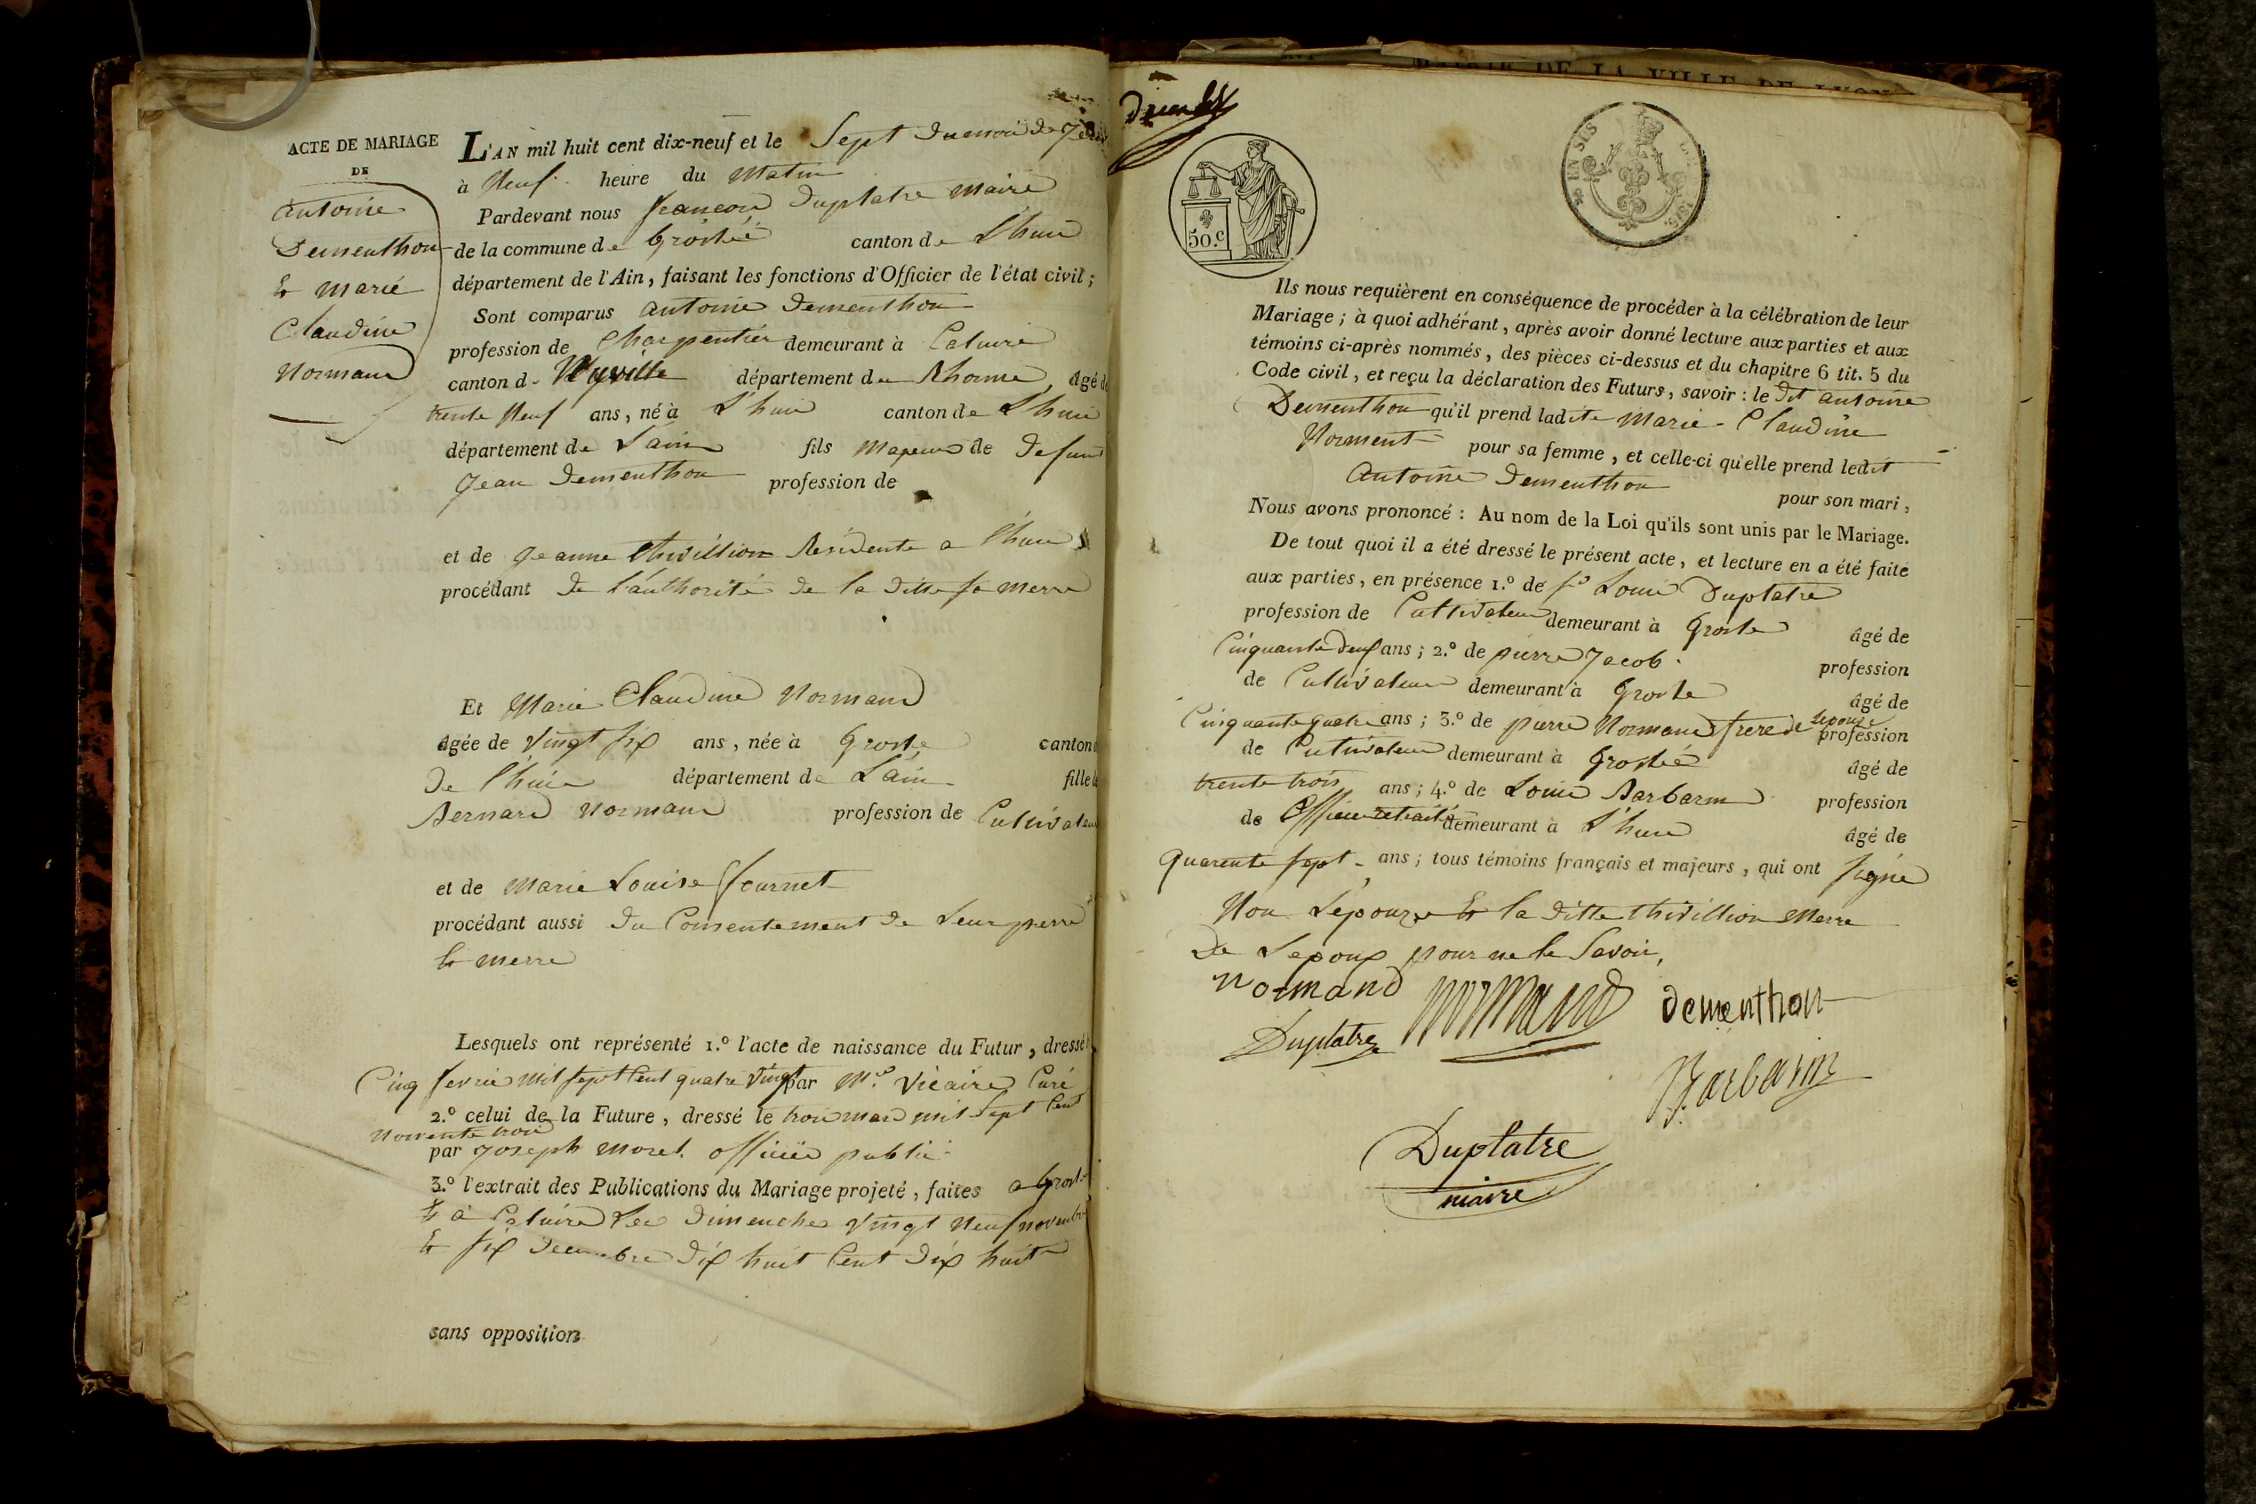 ACTE DE MARIAGE
DE
antoine
Dementhon
& marie
Claudine
Normand
L'AN mil huit cent dix-neuf et le Sept du mois de
à Neuf heure du Matin
Pardevant nous françois Duplatre Maire
de la commune de Groslée canton de L'huis
département de l'Ain, faisant les fonctions d'Officier de l'état civil;
Sont comparus antoine Dementhon
profession de Charpentier demeurant à Caluire
canton d- département du Rhonne, âgé de
trente Neuf ans, né à L'huis canton de L'huis
département de Lain fils Majeur de defunt
Jean Dementhon profession de
et de Jeanne thivillion Residente a L'huis
procédant de l'authorité de la ditte sa merre
Et Marie Claudine Normand
âgée de vingt six ans, née à Grosle canton
de L'huis département de Lain fille
Bernard Normand profession de Cultivateur
et de Marie Louise fournet
procédant aussi du Consentement de Leur perre
& merre
Lesquels ont représenté 1.º l'acte de naissance du Futur, dressé
Cinq fevrie mil sept Cent quatre vingt par Mre Vicaire Curé
2.º celui de la Future, dressé le trois mars mil Sept Cent
Nonente trois
par Joseph Morel officier public
3.º l'extrait des Publications du Mariage projeté, faites a Grosle
& a Caluire Les Dimenches vingt Neuf novembre
& six decembre dix huit Cent dix huit
sans opposition
MAIRIE DE LA VILLE DE LYON
50.c
EN SUS
1816.
Ils nous requièrent en conséquence de procéder à la célébration de leur
Mariage; à quoi adhérant, après avoir donné lecture aux parties et aux
témoins ci-après nommés, des pièces ci-dessus et du chapitre 6 tit. 5 du
Code civil, et reçu la déclaration des Futurs, savoir: le dit antoine
Dementhon qu'il prend ladite Marie-Claudine
Norment pour sa femme, et celle-ci qu'elle prend ledit
antoine Dementhon pour son mari,
Nous avons prononcé: Au nom de la Loi qu'ils sont unis par le Mariage.
De tout quoi il a été dressé le présent acte, et lecture en a été faite
aux parties, en présence 1.º de Louis Duplatre
profession de Cultivateur demeurant à Grosle âgé de
Cinquante deux ans; 2.º de pierre Jacob profession
de Cultivateur demeurant à Grosle âgé de
Cinquante quatre ans; 3.º de pierre Normand frere de Lepouse profession
de Cultivateur demeurant à Groslée âgé de
trente trois ans; 4.º de Louis Barbarin profession
de officier retraité demeurant à L'huis âgé de
Quarente sept ans; tous témoins français et majeurs, qui ont signé
Non L'epouze & la ditte thivillion Merre
De Lepoux pour ne le Savoir,
Normand normand dementhon
Duplatre
Barbarin
Duplatre
maire